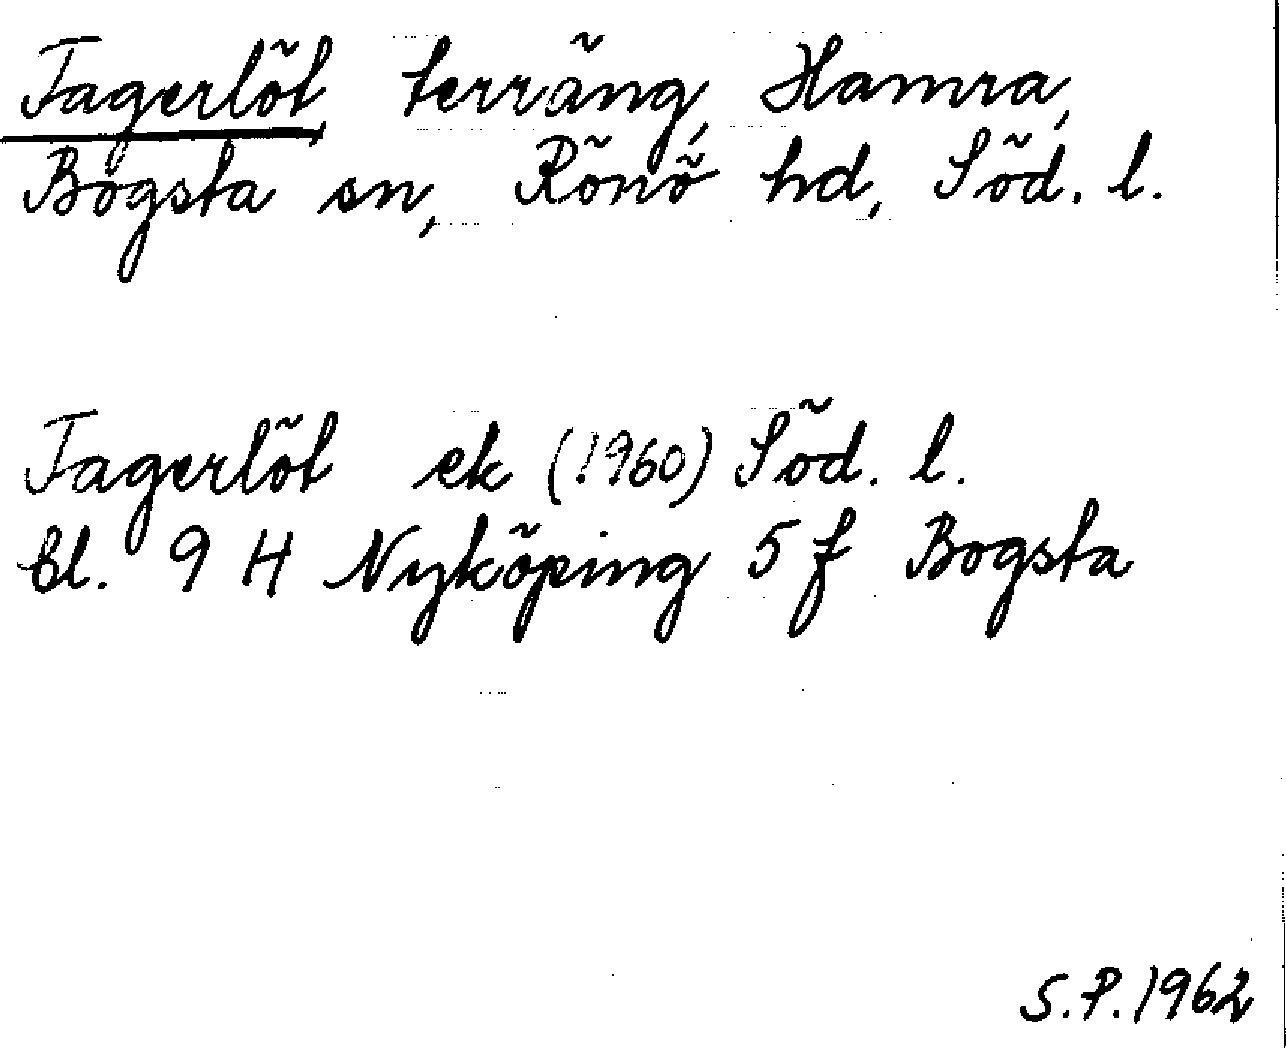 Fagerlöt, terräng, Hamra,
Bogsta sn, Rönö hd, Söd. l.
Fagerlöt ek (1960) Söd. l.
bl. 9 H Nyköping 5 f Bogsta
S.P. 1962